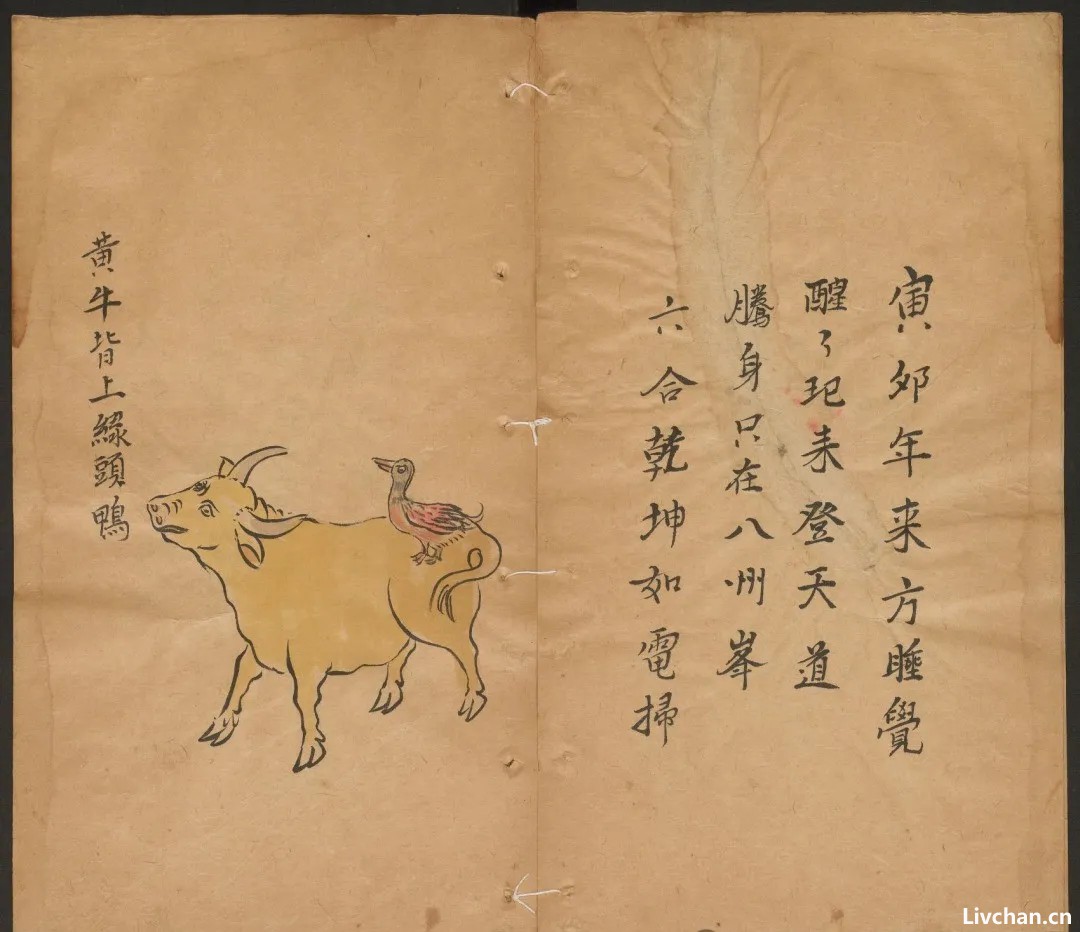 寅夘年来方睡覺
醒了玘来登天道
騰身只在八州峯
六合乾坤如電掃
黄牛背上綠頭鴨
Livchan.cn